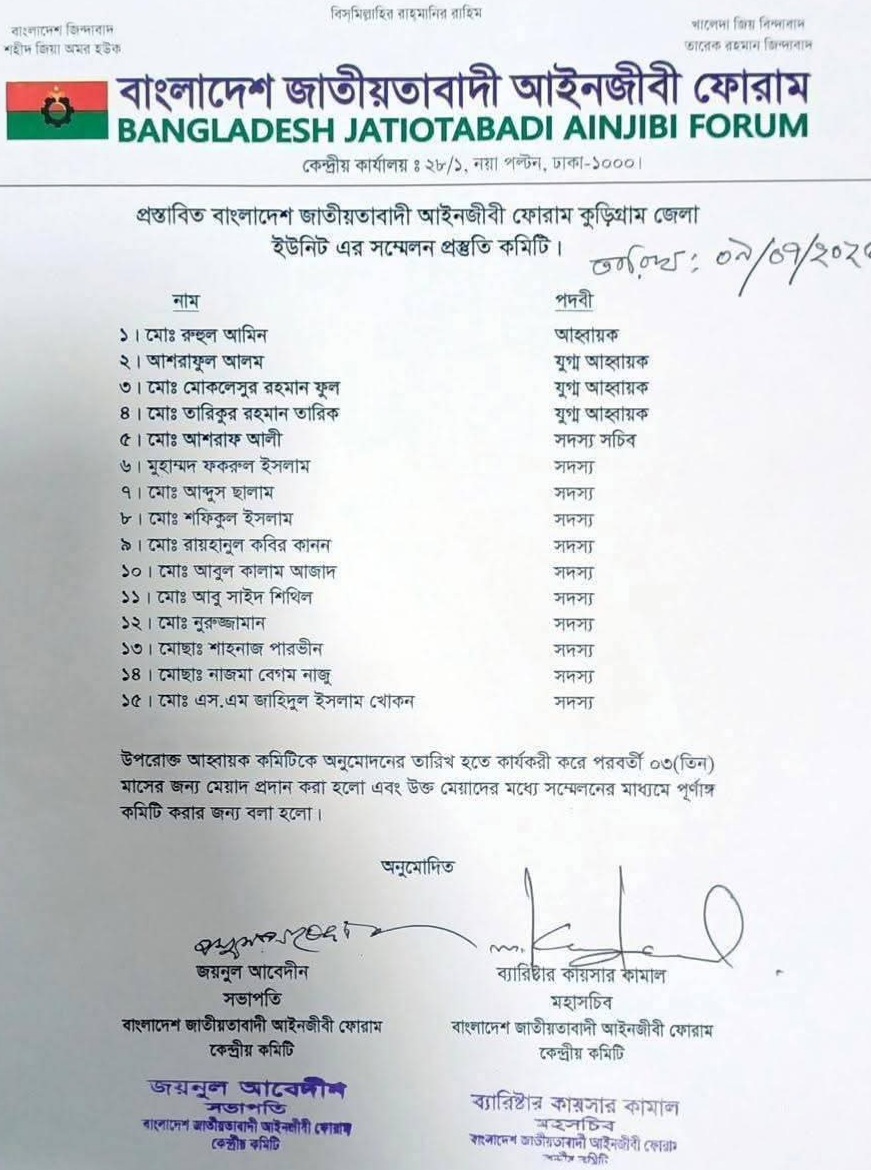 বিসমিল্লাহির রাহমানির রাহিম
বাংলাদেশ জিন্দাবাদ
শহীদ জিয়া অমর হউক
খালেদা জিয়া জিন্দাবাদ
তারেক রহমান জিন্দাবাদ
বাংলাদেশ জাতীয়তাবাদী আইনজীবী ফোরাম
BANGLADESH JATIOTABADI AINJIBI FORUM
কেন্দ্রীয় কার্যালয় ঃ ২৮/১, নয়া পল্টন, ঢাকা-১০০০।
প্রস্তাবিত বাংলাদেশ জাতীয়তাবাদী আইনজীবী ফোরাম কুড়িগ্রাম জেলা
ইউনিট এর সম্মেলন প্রস্তুতি কমিটি।
তারিখ: ০৯/০৭/২০২
নাম পদবী
১। মোঃ রুহুল আমিন আহ্বায়ক
২। আশরাফুল আলম যুগ্ম আহ্বায়ক
৩। মোঃ মোকলেসুর রহমান ফুল যুগ্ম আহ্বায়ক
৪। মোঃ তারিকুর রহমান তারিক যুগ্ম আহ্বায়ক
৫। মোঃ আশরাফ আলী সদস্য সচিব
৬। মুহাম্মদ ফকরুল ইসলাম সদস্য
৭। মোঃ আব্দুস ছালাম সদস্য
৮। মোঃ শফিকুল ইসলাম সদস্য
৯। মোঃ রায়হানুল কবির কানন সদস্য
১০। মোঃ আবুল কালাম আজাদ সদস্য
১১। মোঃ আবু সাইদ শিথিল সদস্য
১২। মোঃ নুরুজ্জামান সদস্য
১৩। মোছাঃ শাহনাজ পারভীন সদস্য
১৪। মোছাঃ নাজমা বেগম নাজু সদস্য
১৫। মোঃ এস.এম জাহিদুল ইসলাম খোকন সদস্য
উপরোক্ত আহ্বায়ক কমিটিকে অনুমোদনের তারিখ হতে কার্যকরী করে পরবর্তী ০৩(তিন)
মাসের জন্য মেয়াদ প্রদান করা হলো এবং উক্ত মেয়াদের মধ্যে সম্মেলনের মাধ্যমে পূর্ণাঙ্গ
কমিটি করার জন্য বলা হলো।
অনুমোদিত
জয়নুল আবেদীন
সভাপতি
বাংলাদেশ জাতীয়তাবাদী আইনজীবী ফোরাম
কেন্দ্রীয় কমিটি
ব্যারিষ্টার কায়সার কামাল
মহাসচিব
বাংলাদেশ জাতীয়তাবাদী আইনজীবী ফোরাম
কেন্দ্রীয় কমিটি
জয়নুল আবেদীন
সভাপতি
বাংলাদেশ জাতীয়তাবাদী আইনজীবী ফোরাম
কেন্দ্রীয় কমিটি
ব্যারিষ্টার কায়সার কামাল
মহাসচিব
বাংলাদেশ জাতীয়তাবাদী আইনজীবী ফোরাম
কেন্দ্রীয় কমিটি